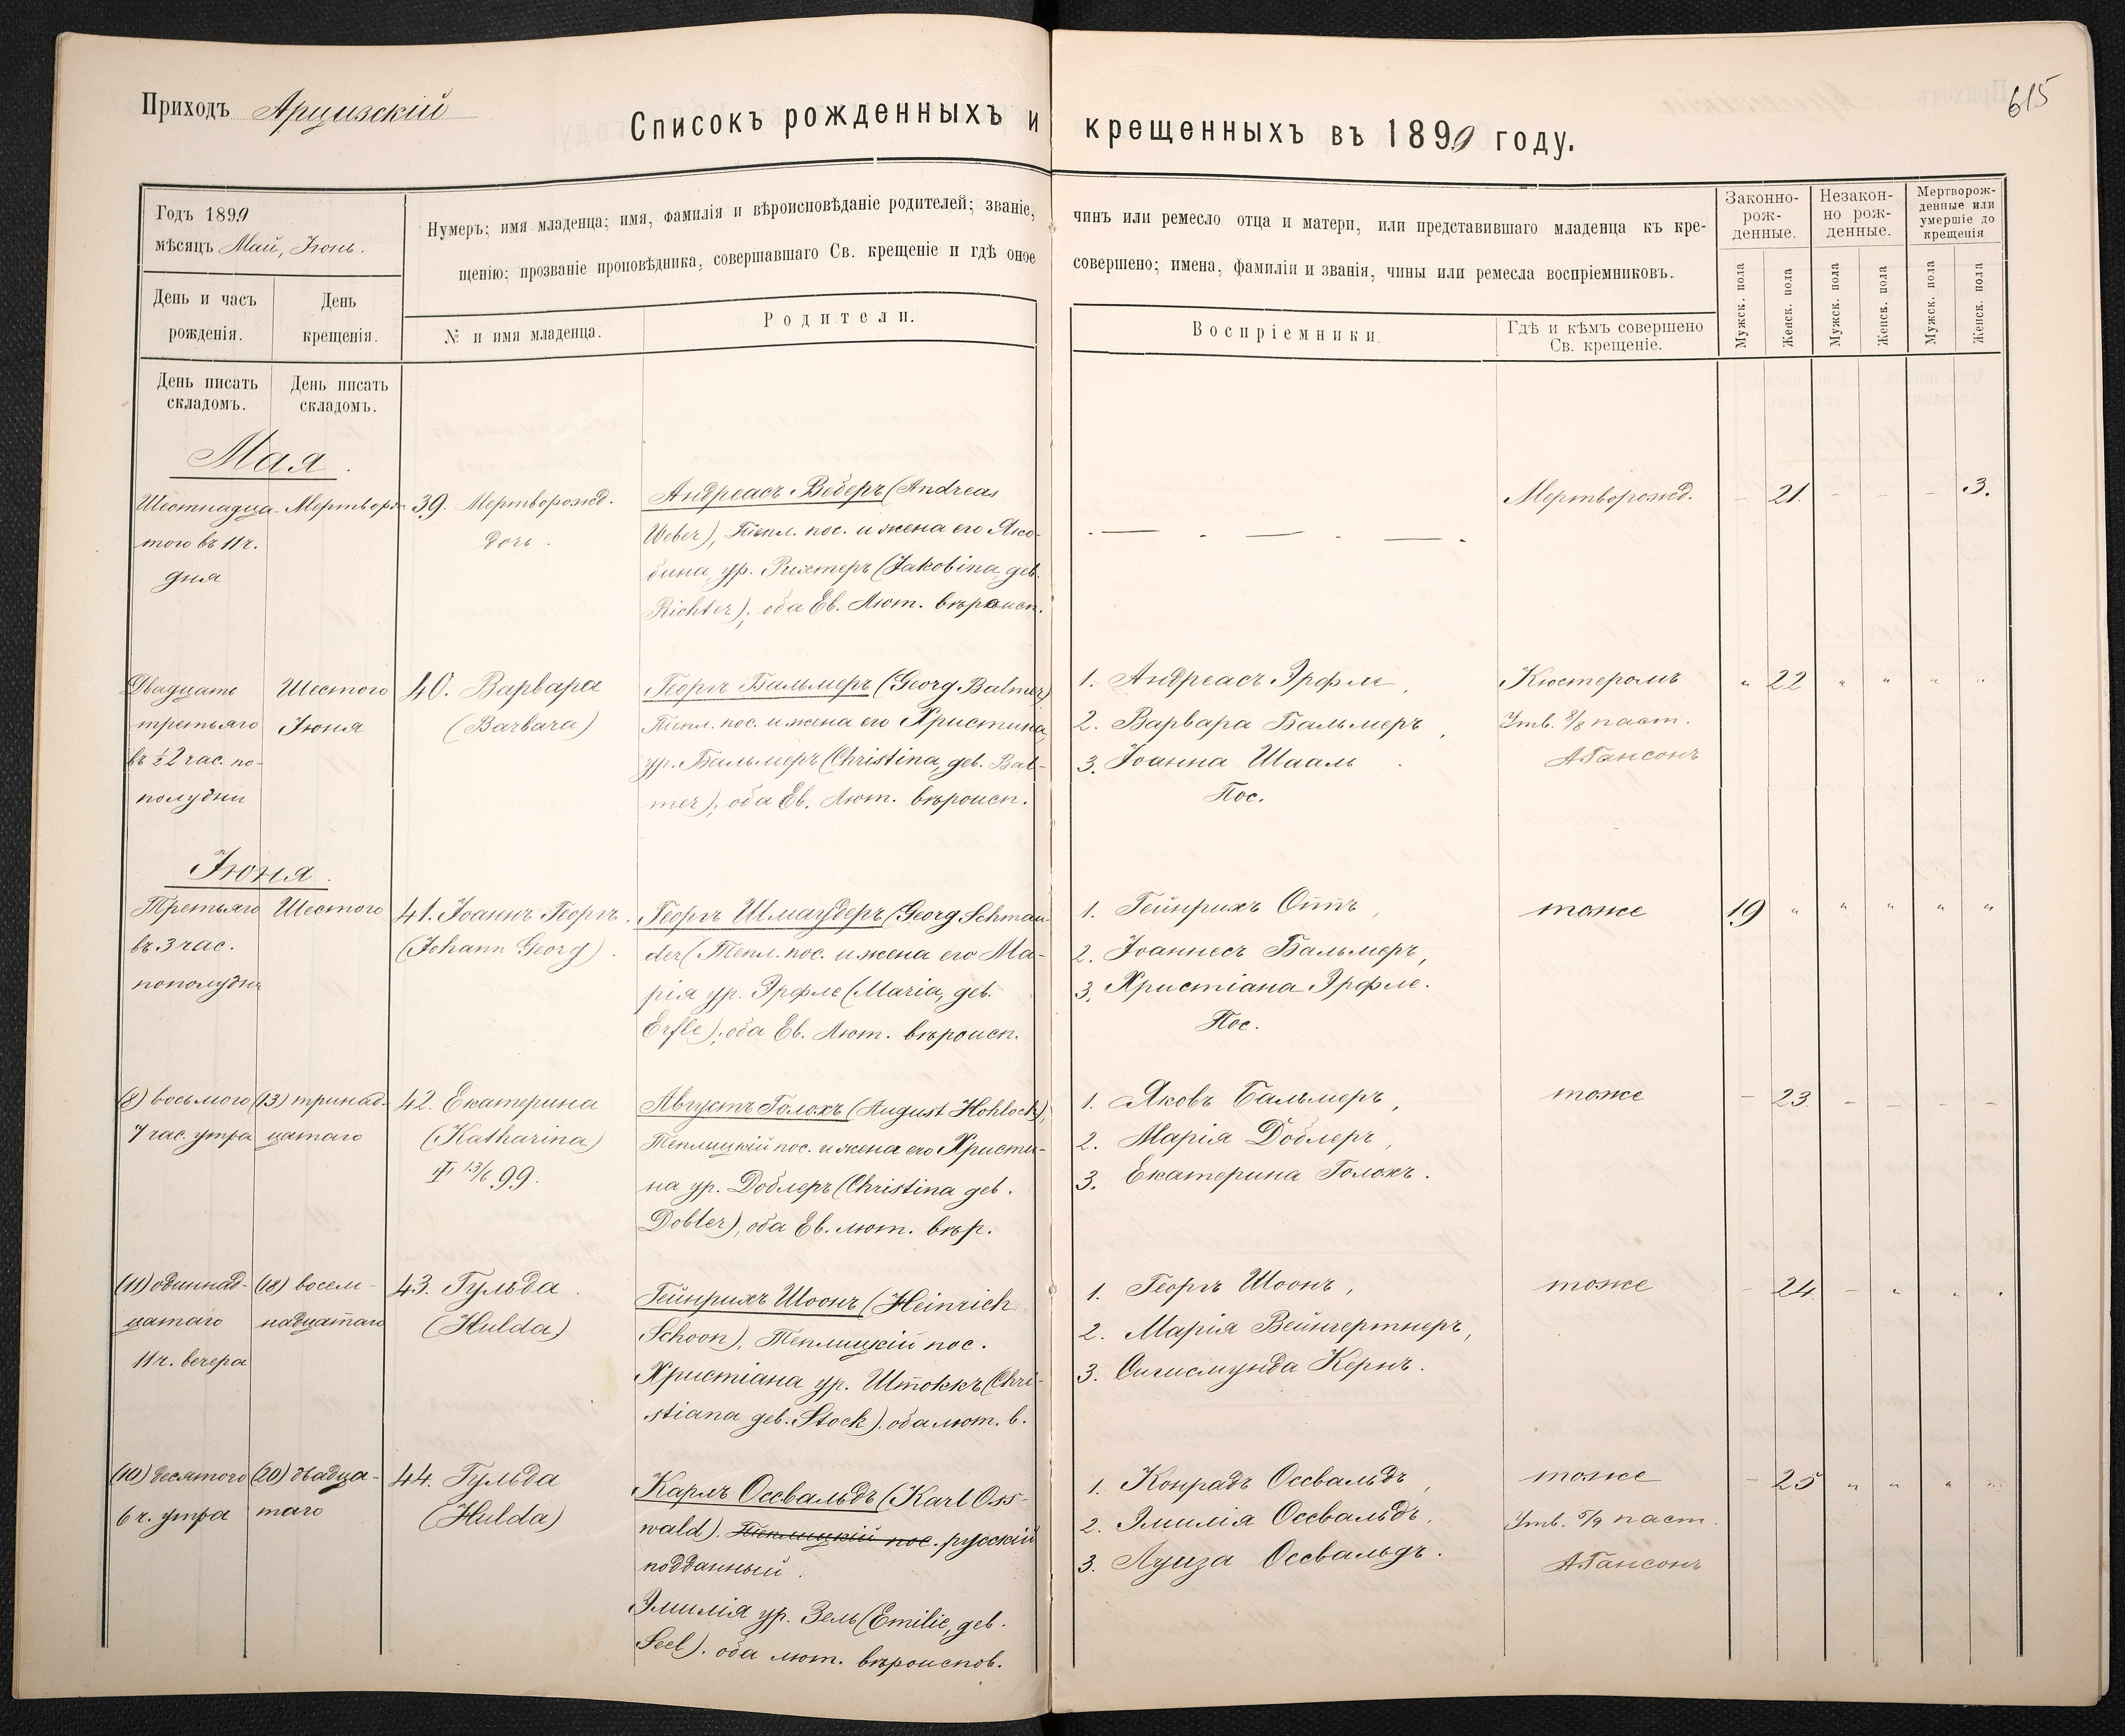 Приходъ Арцизскій
615
Списокъ рожденныхъ и крещенныхъ въ 1899 году.
Годъ 1899
мѣсяцъ Май, Іюнь.
День и часъ рожденія.
День крещенія.
Нумеръ; имя младенца; имя, фамилія и вѣроисповѣданіе родителей; званіе, чинъ или ремесло отца и матери, или представившаго младенца къ кре-
щенію; прозваніе проповѣдника, совершавшаго Св. крещеніе и гдѣ оное совершено; имена, фамиліи и званія, чины или ремесла воспріемниковъ.
№ и имя младенца.
Родители.
Воспріемники.
Гдѣ и кѣмъ совершено
Св. крещеніе.
Законно-
рож-
денные.
Незакон-
но рож-
денные.
Мертворож-
денные или
умершіе до
крещенія
Мужск. пола
Женск. пола
Мужск. пола
Женск. пола
Мужск. пола
Женск. пола
День писать
складомъ.
День писать
складомъ.
Мая.
Шестнадца-
того въ 11 ч.
дня
Мертворж.
39. Мертворожд.
дочь.
Андреасъ Веберъ (Andreas
Weber), Тепл. пос. и жена его Яко-
бина, ур. Рихтеръ (Jakobina, geb.
Richter); оба Ев. Лют. вѣроисп.
Мертворожд.
- 21. - - - 3.
Двадцать
третьяго
въ ½2 час. по-
полудни
Шестого
Іюня
40. Варвара
(Barbara)
Георгъ Бальмеръ (Georg Balmer)
Тепл. пос. и жена его Христина,
ур. Бальмеръ (Christina, geb. Bal-
mer); оба Ев. Лют. вѣроисп.
1. Андреасъ Эрфле,
2. Варвара Бальмеръ,
3. Іоанна Шааль.
Пос.
Кюстеромъ
Утв. 8/8 паст.
А. Гансонъ
" 22 " " " "
Іюня.
Третьяго
въ 3 час.
пополудни
Шестого
41. Іоаннъ Георгъ.
(Johann Georg).
Георгъ Шмаудеръ (Georg Schmau-
der( Тепл. пос. и жена его Ма-
рія ур. Эрфле (Maria, geb.
Erfle); оба Ев. Лют. вѣроисп.
1. Гейнрихъ Оттъ,
2. Іоаннесъ Бальмеръ,
3. Христіана Эрфле.
Пос.
тоже
19 " " " " "
(8) восьмого
7 час. утра
(13) тринад-
цатаго
42. Екатерина
(Katharina)
13/6 99.
Августъ Голохъ (August Hohloch),
Теплицкій пос. и жена его Христи-
на ур. Доблеръ (Christina geb.
Dobler), оба Ев. лют. вѣр.
1. Яковъ Бальмеръ,
2. Марія Доблеръ,
3. Екатерина Голохъ.
тоже
- 23 - - - -
(11) одиннад-
цатаго
11 ч. вечера
(18) восем-
надцатаго
43. Гульда.
(Hulda)
Гейнрихъ Шоонъ (Heinrich
Schoon), Теплицкій пос.
Христіана ур. Штоккъ (Chri-
stiana geb. Stock). оба лют. в.
1. Георгъ Шоонъ,
2. Марія Вейнгертнеръ,
3. Сигисмунда Кернъ.
тоже
- 24. - " " "
(10) десятого
6 ч. утра
(20) двадца-
таго
44. Гульда
(Hulda)
Карлъ Оссвальдъ (Karl Oss-
wald). Теплицкій пос. русскій
подданный.
Эмилія ур. Зель (Emilie, geb.
Seel). оба лют. вѣроиспов.
1. Конрадъ Оссвальдъ,
2. Эмилія Оссвальдъ,
3. Луиза Оссвальдъ.
тоже
Утв. 5/9 паст.
А. Гансонъ
- 25 " " " "